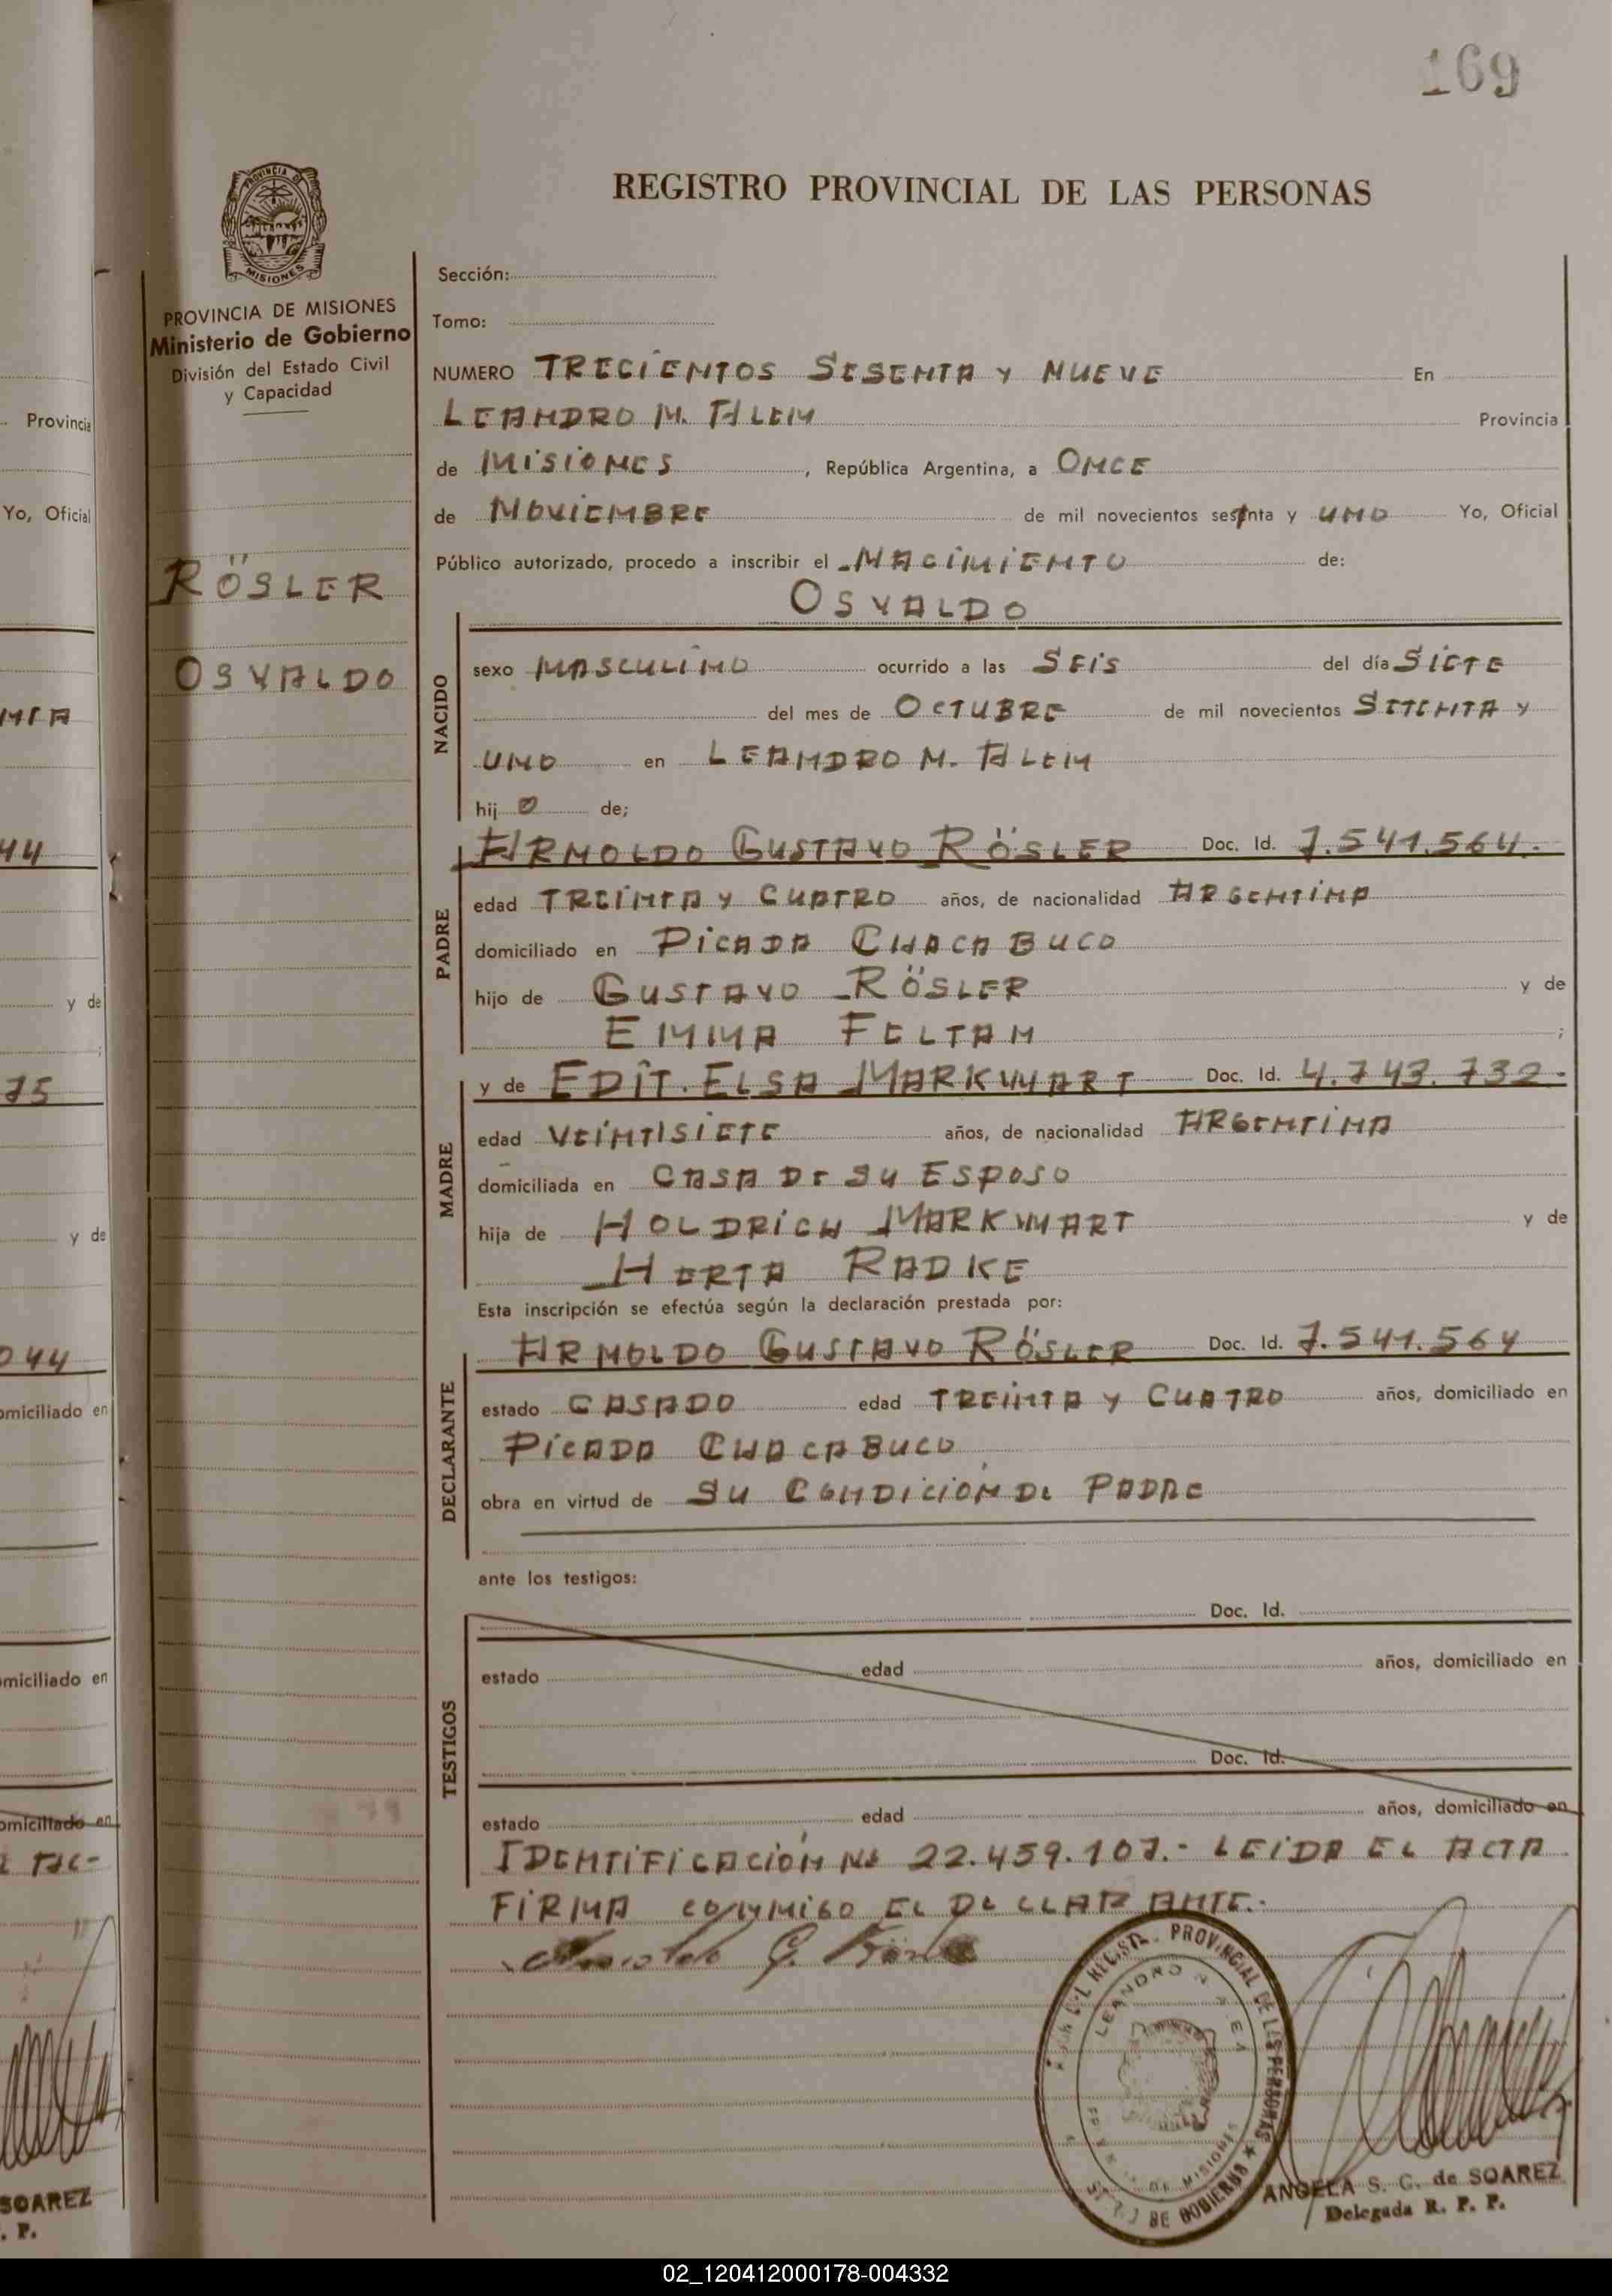 169
REGISTRO PROVINCIAL DE LAS PERSONAS
PROVINCIA DE
MISIONES
PROVINCIA DE MISIONES
Ministerio de Gobierno
División del Estado Civil
y Capacidad
RÖSLER
OSVALDO
Sección:
Tomo:
NUMERO TRECIENTOS SESENTA Y NUEVE En
LEANDRO N. ALEM Provincia
de MISIONES , República Argentina, a ONCE
de NOVIEMBRE de mil novecientos sesenta y UNO Yo, Oficial
Público autorizado, procedo a inscribir el NACIMIENTO de:
OSVALDO
NACIDO
sexo MASCULINO ocurrido a las SEIS del día SIETE
del mes de OCTUBRE de mil novecientos SETENTA Y
UNO en LEANDRO N. ALEM
hij O de;
PADRE
ARNOLDO GUSTAVO RÖSLER Doc. Id. 7.541.564.
edad TREINTA Y CUATRO años, de nacionalidad ARGENTINA
domiciliado en PICADA CHACABUCO
hijo de GUSTAVO RÖSLER y de
EMMA FELTAN ;
MADRE
y de EDIT. ELSA MARKWART Doc. Id. 4.743.732.
edad VEINTISIETE años, de nacionalidad ARGENTINA
domiciliada en CASA DE SU ESPOSO
hija de HOLDRICH MARKWART y de
HERTA RADKE
Esta inscripción se efectúa según la declaración prestada por:
DECLARANTE
ARNOLDO GUSTAVO RÖSLER Doc. Id. 7.541.564
estado CASADO edad TREINTA Y CUATRO años, domiciliado en
PICADA CHACABUCO
obra en virtud de SU CONDICIÓN DE PADRE
ante los testigos:
TESTIGOS
Doc. Id.
estado edad años, domiciliado en
Doc. Id.
estado edad años, domiciliado en
IDENTIFICACIÓN Nº 22.459.107.- LEIDA EL ACTA
FIRMA CONMIGO EL DECLARANTE.
PROVINCIAL DE LAS PERSONAS
LEANDRO N. ALEM
DE MISIONES
DE GOBIERNO
ANGELA S. C. de SOAREZ
Delegada R. P. P.
Provincia
Yo, Oficial
44
y de
;
75
y de
044
domiciliado en
domiciliado en
domiciliado en
SOAREZ
. P.
02_120412000178-004332